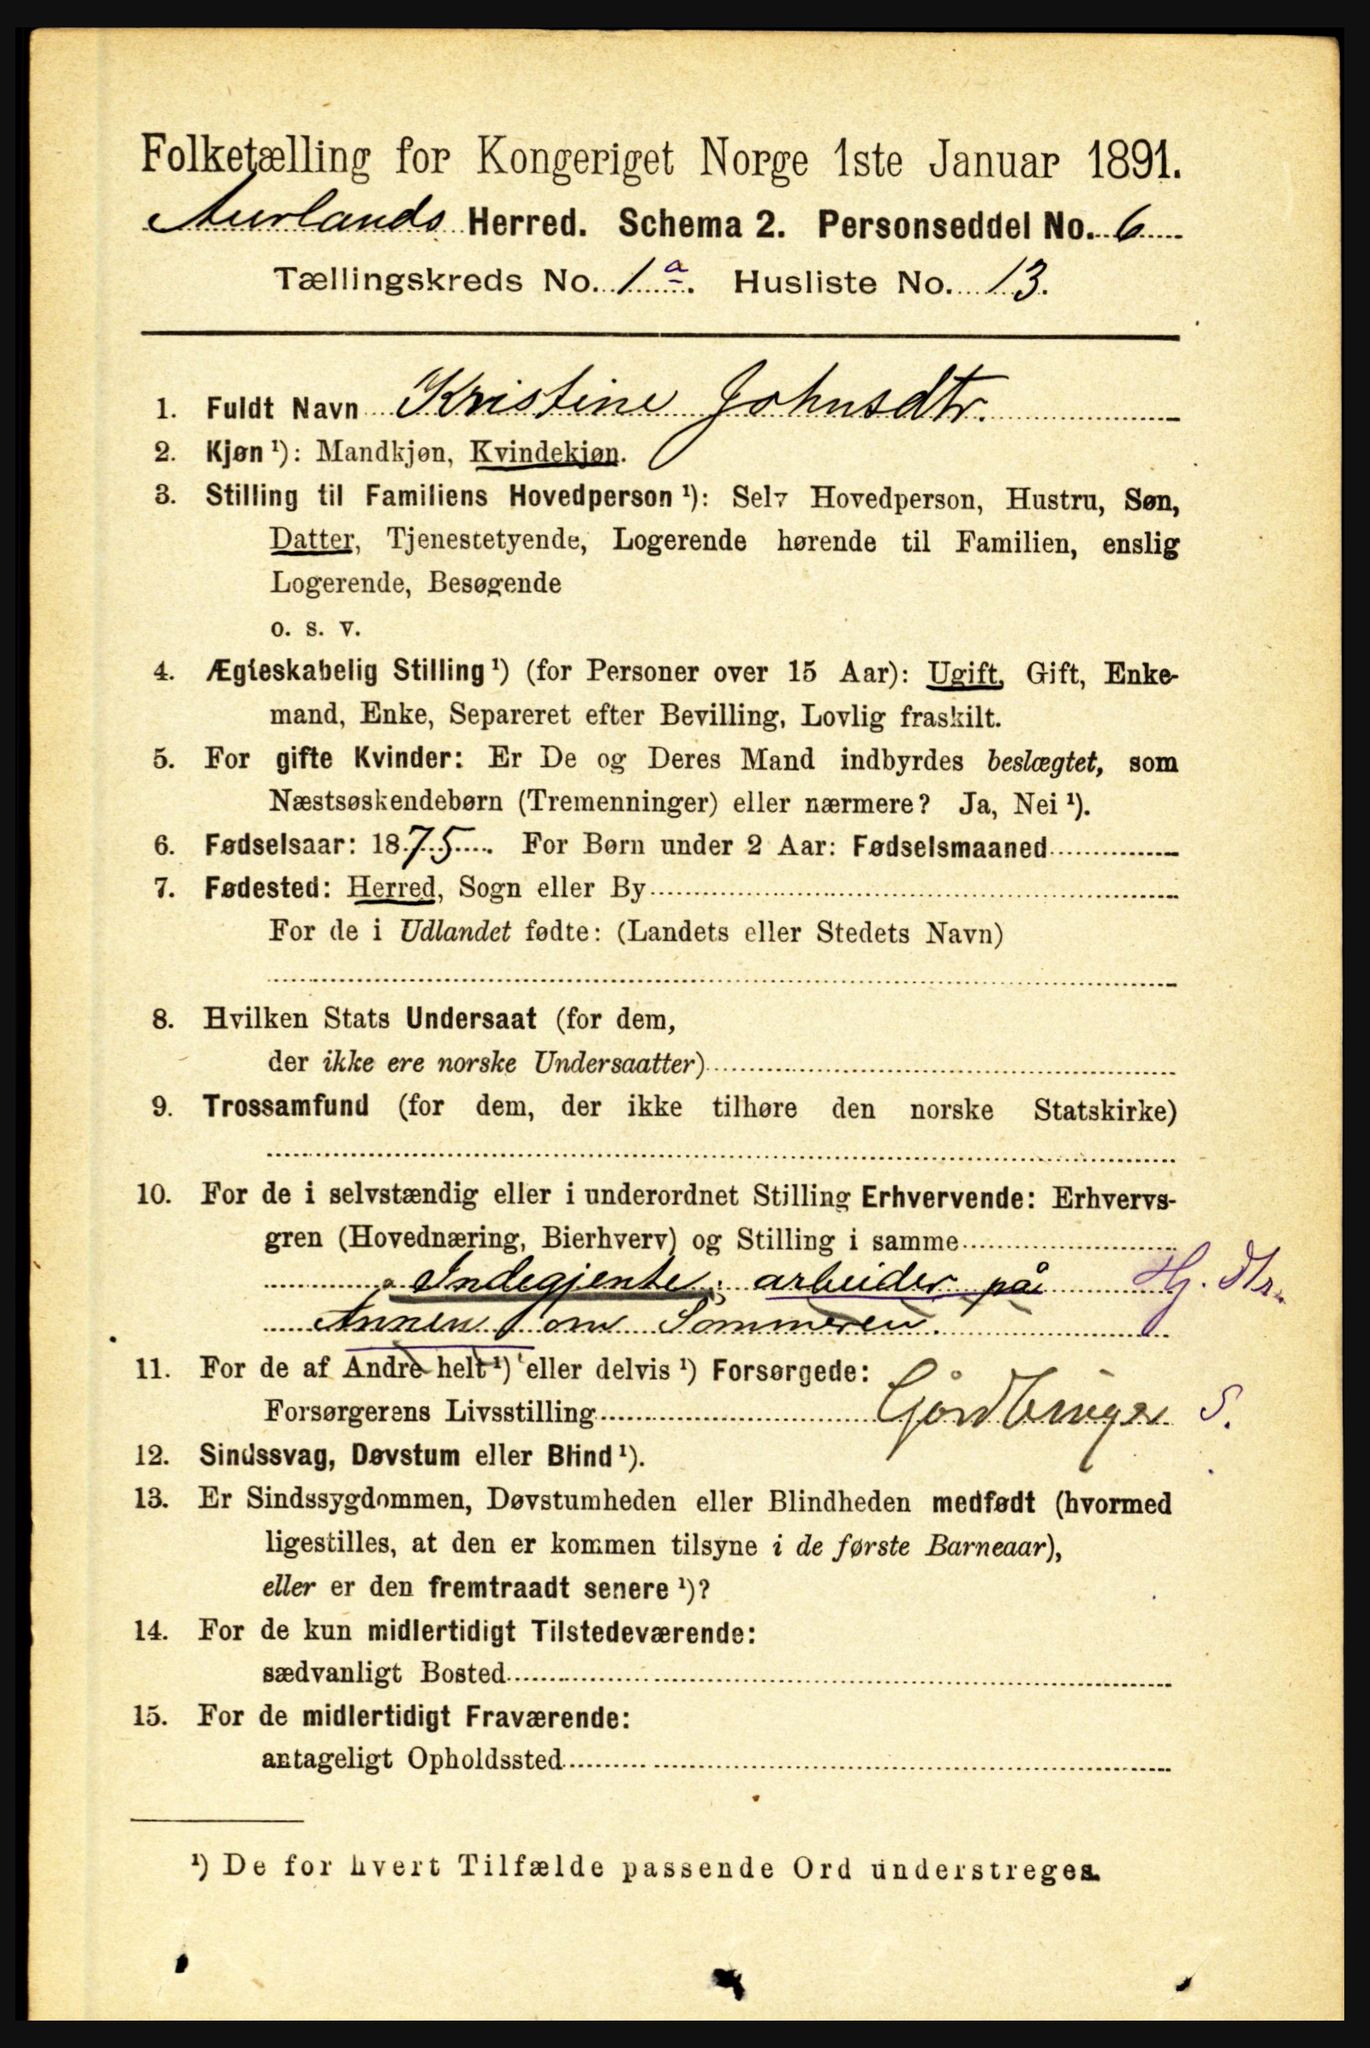 Folketælling for Kongeriget Norge 1ste Januar 1891.
Aurlands Herred. Schema 2. Personseddel No. 6
Tællingskreds No. 1 a. Husliste No. 13.
1. Fuldt Navn Kristine Johnsdtr.
2. Kjøn ¹): Mandkjøn, Kvindekjøn.
3. Stilling til Familiens Hovedperson ¹): Selv Hovedperson, Hustru, Søn,
Datter, Tjenestetyende, Logerende hørende til Familien, enslig
Logerende, Besøgende
o. s. v.
4. Ægteskabelig Stilling ¹) (for Personer over 15 Aar): Ugift, Gift, Enke-
mand, Enke, Separeret efter Bevilling, Lovlig fraskilt.
5. For gifte Kvinder: Er De og Deres Mand indbyrdes beslægtet, som
Næstsøskendebørn (Tremenninger) eller nærmere? Ja, Nei ¹).
6. Fødselsaar: 1875. For Børn under 2 Aar: Fødselsmaaned
7. Fødested: Herred, Sogn eller By
For de i Udlandet fødte: (Landets eller Stedets Navn)
8. Hvilken Stats Undersaat (for dem,
der ikke ere norske Undersaatter)
9. Trossamfund (for dem, der ikke tilhøre den norske Statskirke)
10. For de i selvstændig eller i underordnet Stilling Erhvervende: Erhvervs-
gren (Hovednæring, Bierhverv) og Stilling i samme
Indegjente, arbeider på Hj. dtr.
om Sommeren.
11. For de af Andre helt ¹) eller delvis ¹) Forsørgede:
Forsørgerens Livsstilling Gårdbruger S.
12. Sindssvag, Døvstum eller Blind ¹).
13. Er Sindssygdommen, Døvstumheden eller Blindheden medfødt (hvormed
ligestilles, at den er kommen tilsyne i de første Barneaar),
eller er den fremtraadt senere ¹)?
14. For de kun midlertidigt Tilstedeværende:
sædvanligt Bosted
15. For de midlertidigt Fraværende:
antageligt Opholdssted
¹) De for hvert Tilfælde passende Ord understreges.